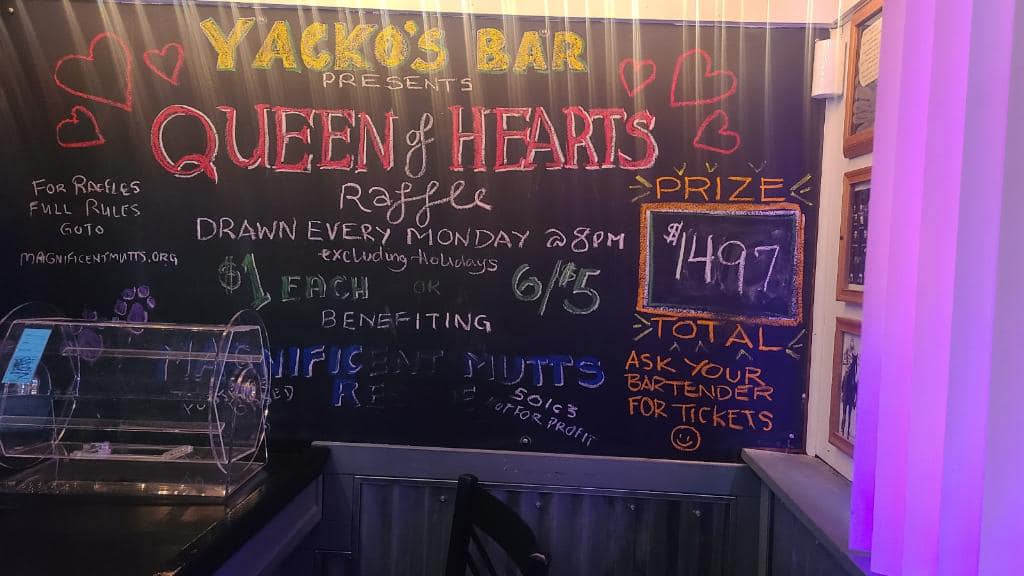 YACKO'S BAR
PRESENTS
QUEEN of HEARTS
Raffle
DRAWN EVERY MONDAY @8PM
excluding Holidays
$1 EACH OR 6/$5
BENEFITING
MAGNIFICENT MUTTS
501c3
NOT FOR PROFIT
FOR RAFFLES
FULL RULES
GOTO
MAGNIFICENTMUTTS.ORG
PRIZE
$1497
TOTAL
ASK YOUR
BARTENDER
FOR TICKETS